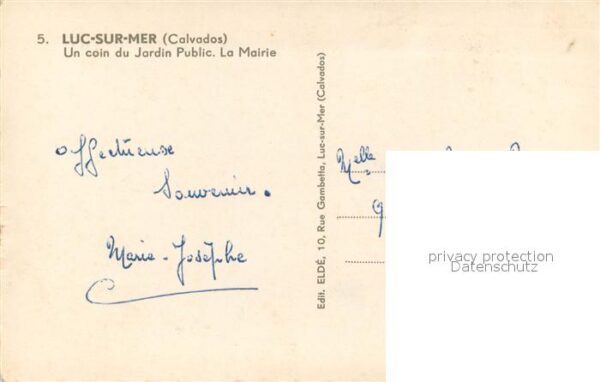 5. LUC-SUR-MER (Calvados)
Un coin du Jardin Public. La Mairie
affectueuse
Souvenir.
Marie-Josèphe
Edit. ELDÉ, 10, Rue Gambetta, Luc-sur-Mer (Calvados)
Melle
privacy protection
Datenschutz